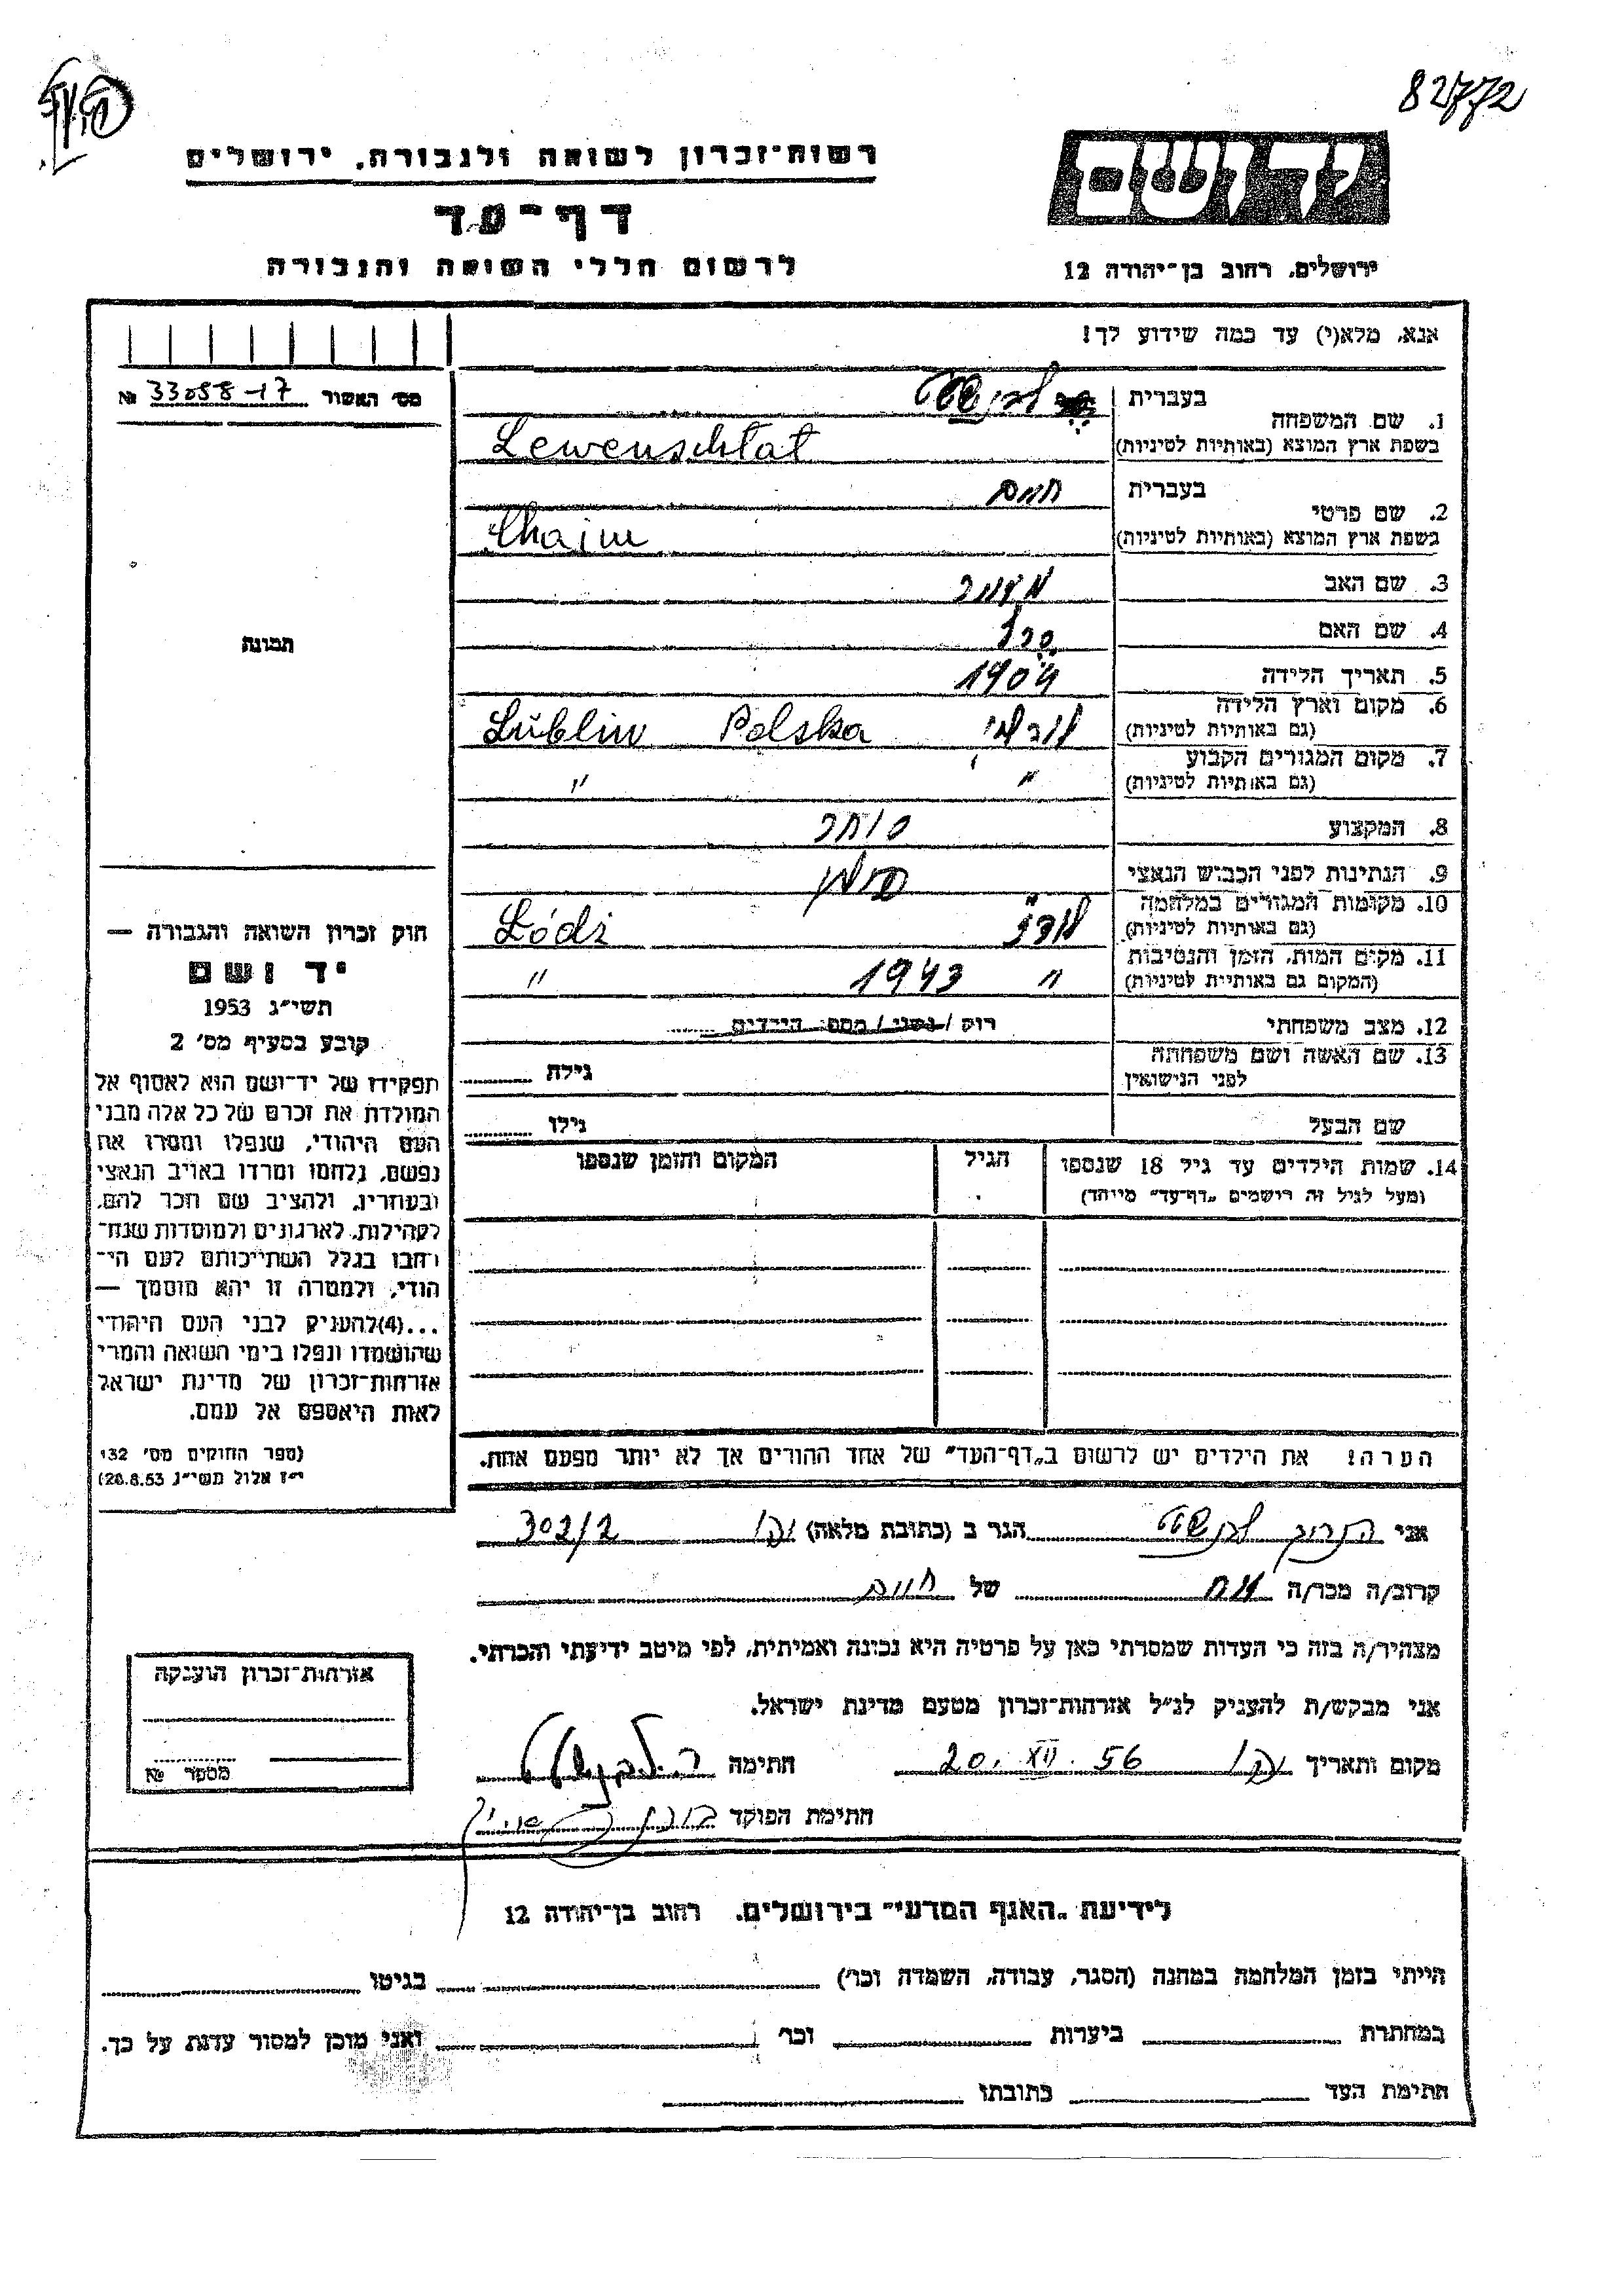 82772
יד ושם
רשות־זכרון לשואה ולגבורה, ירושלים
דף־עד
לרשום חללי השואה והגבורה
ירושלים, רחוב בן־יהודה 12
אנא, מלא(י) עד כמה שידוע לך!
מס׳ האשור 33058-17 №
1. שם המשפחה
בעברית
בשפת ארץ המוצא (באותיות לטיניות) Lewenschtat
2. שם פרטי
בעברית חיים
בשפת ארץ המוצא (באותיות לטיניות) Chaim
3. שם האב
4. שם האם
5. תאריך הלידה 1904
6. מקום וארץ הלידה
(גם באותיות לטיניות) לובלין Lublin Polska
7. מקום המגורים הקבוע
(גם באותיות לטיניות) " "
8. המקצוע סוחר
9. הנתינות לפני הכבוש הנאצי פולין
10. מקומות המגורים במלחמה
(גם באותיות לטיניות) לודז Łódź
11. מקום המות, הזמן והנסיבות
(המקום גם באותיות לטיניות) " 1943 "
12. מצב משפחתי רווק / נשוי / מספר הילדים
13. שם האשה ושם משפחתה
לפני הנישואין גילה
שם הבעל גילו
14. שמות הילדים עד גיל 18 שנספו הגיל המקום והזמן שנספו
(מעל לגיל זה רושמים „דף־עד" מיוחד)
הערה! את הילדים יש לרשום ב„דף־העד" של אחד ההורים אך לא יותר מפעם אחת.
תמונה
חוק זכרון השואה והגבורה —
יד ושם
תשי״ג 1953
קובע בסעיף מס׳ 2
תפקידו של יד־ושם הוא לאסוף אל
המולדת את זכרם של כל אלה מבני
העם היהודי, שנפלו ומסרו את
נפשם, נלחמו ומרדו באויב הנאצי
ובעוזריו, ולהציב שם וזכר להם,
לקהילות, לארגונים ולמוסדות שנח־
רבו בגלל השתייכותם לעם הי־
הודי, ולמטרה זו יהא מוסמך —
...(4)להעניק לבני העם היהודי
שהושמדו ונפלו בימי השואה והמרי
אזרחות־זכרון של מדינת ישראל
לאות היאספם אל עמם.
(ספר החוקים מס׳ 132
י״ז אלול תשי״ג 28.8.53)
אני הגר ב (כתובת מלאה) 302/2
קרוב/ה מכר/ה אח של חיים
מצהיר/ה בזה כי העדות שמסרתי כאן על פרטיה היא נכונה ואמיתית, לפי מיטב ידיעתי והכרתי.
אני מבקש/ת להעניק לנ״ל אזרחות־זכרון מטעם מדינת ישראל.
מקום ותאריך 20. XII. 56 חתימה
חתימת הפוקד
אזרחות־זכרון הוענקה
מספר №
לידיעת „האגף המדעי" בירושלים, רחוב בן־יהודה 12
הייתי בזמן המלחמה במחנה (הסגר, עבודה, השמדה וכו׳) בגיטו
במחתרת ביערות וכו׳ ואני מוכן למסור עדות על כך.
חתימת העד כתובתו